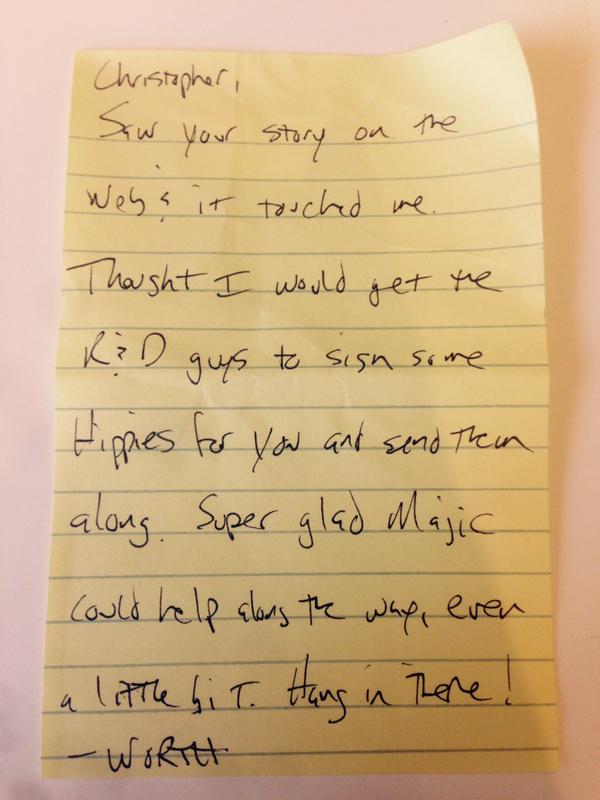 Christopher,
Saw your story on the
Web & it touched me.
Thought I would get the
R&D guys to sign some
Hippies for you and send them
along. Super glad Magic
could help along the way, even
a little bit. Hang in There!
- WORTH